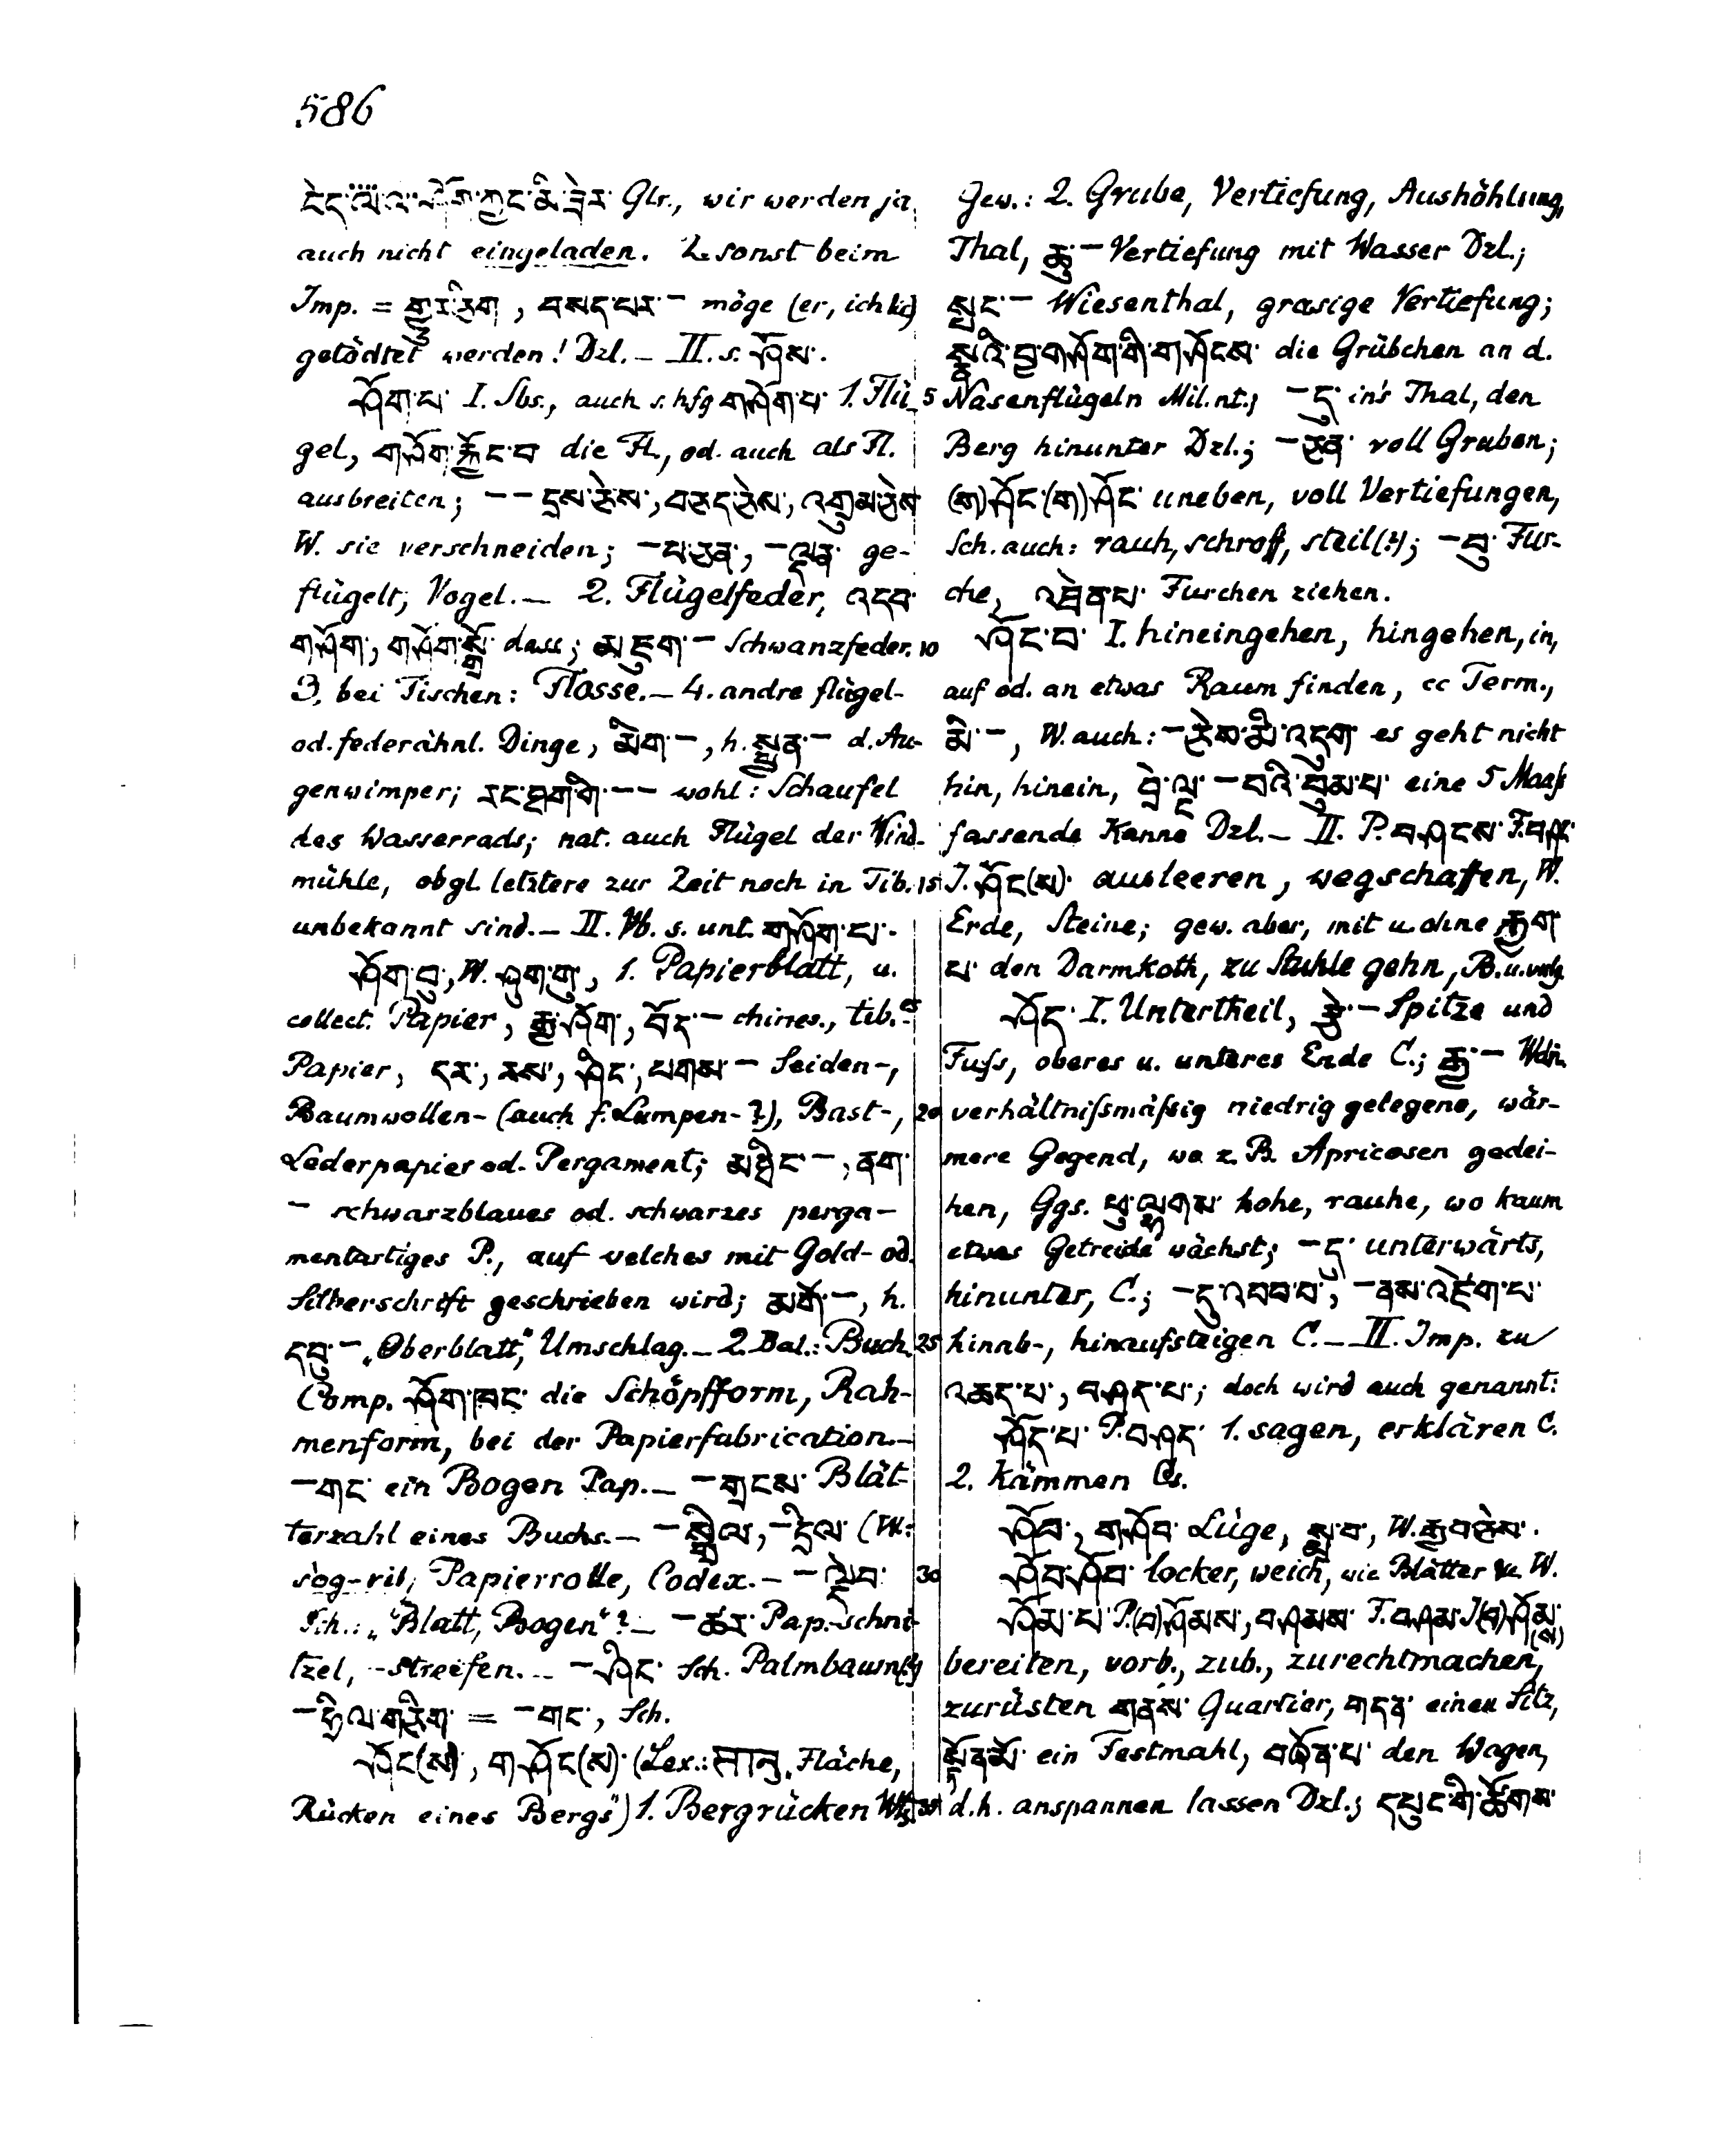 586
ངེད་ལ་ཤོག་ཀྱང་མི་ཟེར་ Glr., wir werden ja
auch nicht eingeladen. 2. sonst beim
Imp. = གྱུར་ཅིག, བསད་པར་ – möge (er, ich &c)
getödtet werden! Dzl. – II. s. ཤོས་.
ཤོག་པ་ I. Sbs., auch s. hfg གཤོག་པ་ 1. Flü-
gel, གཤོག་རྐྱོང་བ die Fl., od. auch als Fl.
ausbreiten; – – དྲས་ཅེས་, བཅད་ཅེས་, འགྲུམ་ཅེས་
W. sie verschneiden; – པ་ཅན་, – ལྡན་ ge-
flügelt; Vogel. – 2. Flügelfeder, འདབ་
གཤོག་, གཤོག་སྒྲོ་ dass; མཇུག་ – Schwanzfeder.
3. bei Fischen: Flosse. – 4. andre flügel-
od. federähnl. Dinge, མིག་ –, h. སྤྱན་ – d. Au-
genwimper; རང་ཐག་གི་ – – wohl: Schaufel
des Wasserrads; nat. auch Flügel der Wind-
mühle, obgl. letztere zur Zeit noch in Tib.
unbekannt sind. – II. Vb. s. unt. གཤོག་པ་.
ཤོག་བུ་, W. ཤུག་གུ་, 1. Papierblatt, u.
collect. Papier, རྒྱ་ཤོག་, བོད་ – chines., tib.
Papier, དར་, རས་, ཤིང་, པགས་ – Seiden-,
Baumwollen- (auch f. Lumpen- ?), Bast-,
Lederpapier od. Pergament; མཐིང་ –, ནག་
– schwarzblaues od. schwarzes perga-
mentartiges P., auf welches mit Gold- od.
Silberschrift geschrieben wird; མགོ་ –, h.
དབུ་ – „Oberblatt“, Umschlag. – 2. Bal.: Buch.
Comp. ཤོག་ཁང་ die Schöpfform, Rah-
menform, bei der Papierfabrication. –
– གང་ ein Bogen Pap. – – གྲངས་ Blät-
terzahl eines Buchs. – – སྒྲིལ་, – དྲིལ་ (W.:
sog-ril, Papierrolle, Codex. – – ལྡེབ་
Sch.: „Blatt, Bogen“? – – ཚར་ Pap.-schni-
tzel, -streifen. – – ཤིང་ Sch. Palmbaum(?)
– ཧྲིལ་གཅིག་ = – གང་, Sch.
ཤོང(ས)་, གཤོང(ས)་ (Lex.: सानु „Fläche,
Rücken eines Bergs“) 1. Bergrücken
Gew.: 2. Grube, Vertiefung, Aushöhlung,
Thal, ཆུ་ – Vertiefung mit Wasser Dzl.;
སྤང་ – Wiesenthal, grasige Vertiefung;
སྣའི་བྱ་གཤོག་གི་གཤོངས་ die Grübchen an d.
5 Nasenflügeln Mil. nt.; – དུ་ in's Thal, den
Berg hinunter Dzl.; – ཅན་ voll Gruben;
(ག)ཤོང་(ག)ཤོང་ uneben, voll Vertiefungen,
Sch. auch: rauh, schroff, steil(?); – བུ་ Fur-
che, འཐེན་པ་ Furchen ziehen.
10 ཤོང་བ་ I. hineingehen, hingehen, in,
auf od. an etwas Raum finden, cc Term.,
མི་ –, W. auch: – ཅེས་མི་འདུག་ es geht nicht
hin, hinein, བྲེ་ལྔ་ – བའི་བུམ་པ་ eine 5 Maaß
fassende Kanne Dzl. – II. P. བཤངས་ F. བཤང་
15 J. ཤོང(ས)་ ausleeren, wegschaffen, W.
Erde, Steine; gew. aber, mit u. ohne རྐྱག་
པ་ den Darmkoth, zu Stuhle gehn, B. u. vulg.
ཤོད་ I. Untertheil, རྩེ་ – Spitze und
Fuß, oberes u. unteres Ende C.; རྒྱ་ – Wdn.
20 verhältnißmäßig niedrig gelegene, wär-
mere Gegend, wo z. B. Apricosen gedei-
hen, Ggs. ཕུ་ལྷགས་ hohe, rauhe, wo kaum
etwas Getreide wächst; – དུ་ unterwärts,
hinunter, C.; – དུ་འབབ་བ་, – ནས་འཛེག་པ་
25 hinab-, hinaufsteigen C. – II. Imp. zu
འཆད་པ་, བཤད་པ་; doch wird auch genannt:
ཤོད་པ་ P. བཤད་ 1. sagen, erklären C.
2. kämmen Cs.
ཤོབ་, གཤོབ་ Lüge, སྨྲ་བ་, W. རྒྱབ་ཅེས་.
30 ཤོབ་ཤོབ་ locker, weich, wie Blätter &c. W.
ཤོམ་པ་ P. (བ)ཤོམས་, བཤམས་ F. བཤམ་ J. (བ)ཤོམ་(ས)
bereiten, vorb., zub., zurechtmachen,
zurüsten གནས་ Quartier, གདན་ einen Sitz,
སྟོན་མོ་ ein Festmahl, བཞོན་པ་ den Wagen,
35 d.h. anspannen lassen Dzl.; དཔུང་གི་ཚོགས་